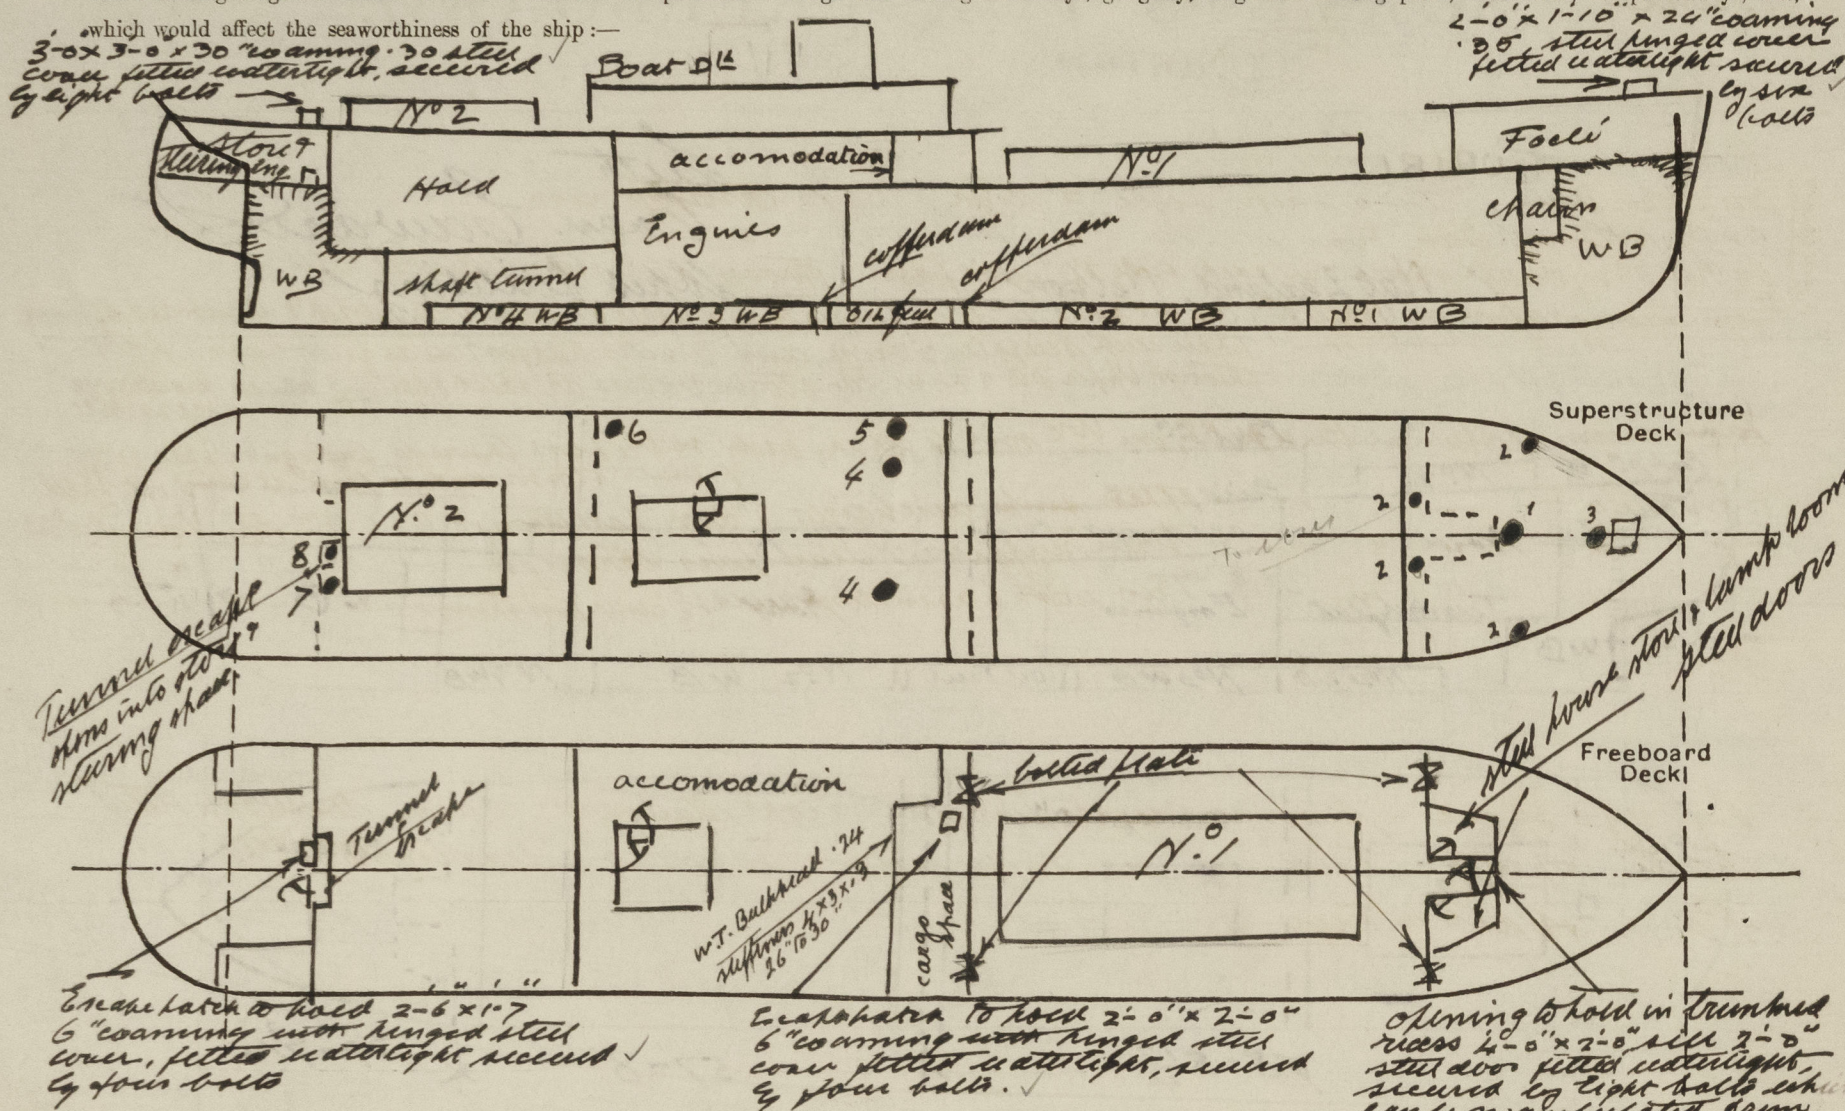 which would affect the seaworthiness of the ship :—
3'-0 x 3'-0" x 30" coaming .30 steel
cover fitted watertight, secured
by eight bolts
2'-0" x 1'-10" x 24" coaming
steel hinged cover
fitted watertight secured
by six
bolts
Boat Dk
No 2
Store &
Steering eng
Hold
accomodation
No 1
Focle
Engines
cofferdam
cofferdam
chain
WB
WB
shaft tunnel
No 4 WB
No 3 WB
Oil fuel
No 2 WB
No 1 WB
Superstructure
Deck
6
5
4
2
No 2
2
1
3
8
7
4
2
2
Tunnel escape
opens into store &
steering space
steel house store & lamp room
steel doors
Freeboard
Deck
accomodation
bolted plate
Tunnel
Escape
No 1
W.T. Bulkhead .24
stiffeners 4 x 3 x .3
26" to 30"
cargo
space
Escape hatch to hold 2'-6" x 1'-7"
6" coaming with hinged steel
cover, fitted watertight secured
by four bolts
Escape hatch to hold 2'-0" x 2'-0"
6" coaming with hinged steel
cover fitted watertight, secured
by four bolts.
opening to hold in trimmed
recess 4'-0" x 2'-0" sill 2'-0"
steel door fitted watertight,
secured by eight bolts